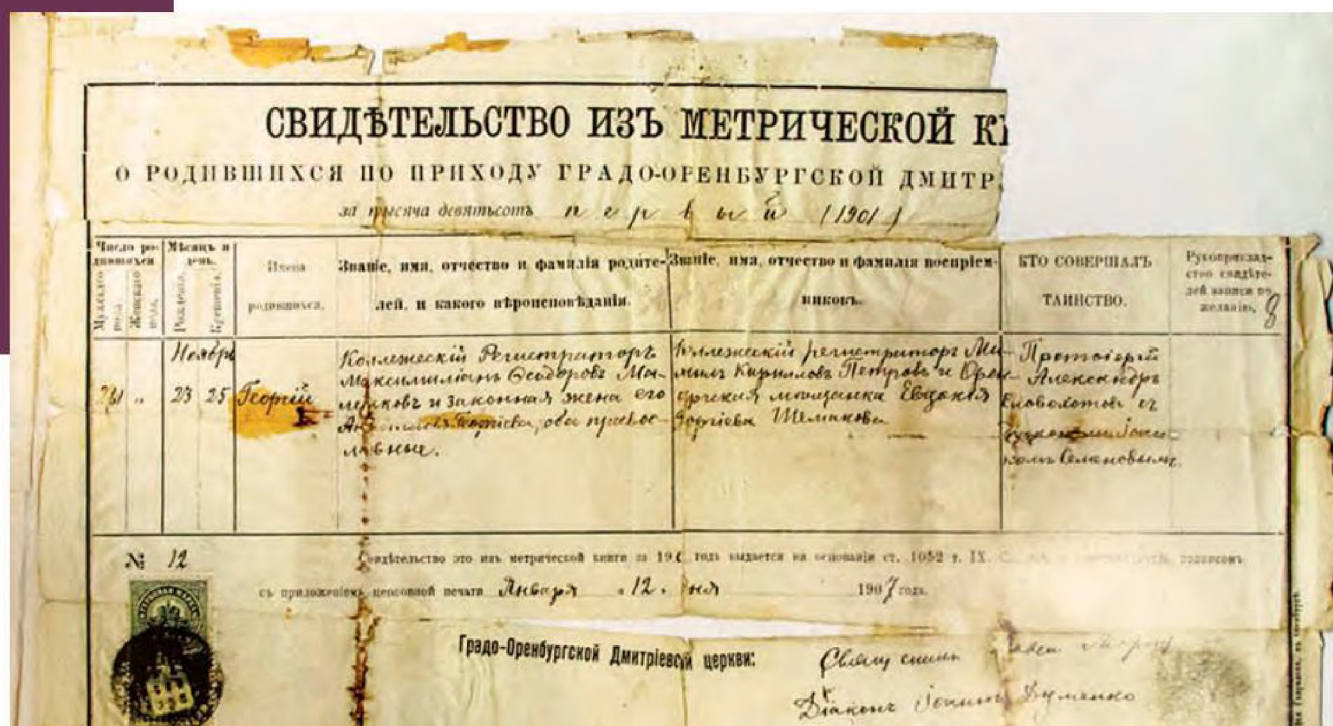 СВИДѢТЕЛЬСТВО ИЗЪ МЕТРИЧЕСКОЙ К
О РОДИВШИХСЯ ПО ПРИХОДУ ГРАДО-ОРЕНБУРГСКОЙ ДМИТР
за тысяча девятьсотъ первый (1901)
Число ро-
дившихся
Мужского
пола.
Женскаго
пола.
Мѣсяцъ и
день.
Рожденія.
Крещенія.
Имена
родившихся.
Званіе, имя, отчество и фамилія родите-
лей, и какого вѣроисповѣданія.
Званіе, имя, отчество и фамилія воспріем-
никовъ.
КТО СОВЕРШАЛЪ
ТАИНСТВО.
Рукоприклад-
ство свидѣте-
лей записи по
желанію.
8
Ноябрь
23 25
Георгій
Коллежескій Регистраторъ
Максимиліанъ Ѳеодоровъ Ма-
ленковъ и законная жена его
оба правос-
лавные.
Коллежскій регистраторъ
Кирилловъ Петровъ и Орен-
мѣщанка Евдокія
Шемякова
Протоіерей
Александръ
съ
№ 12
Свидѣтельство это изъ метрической книги за 190 годъ выдается на основаніи ст. 1052 т. IX. подписомъ
съ приложеніемъ церковной печати Января 12 дня 1907 года.
Градо-Оренбургской Дмитріевской церкви:
Священникъ
Діаконъ Думенко